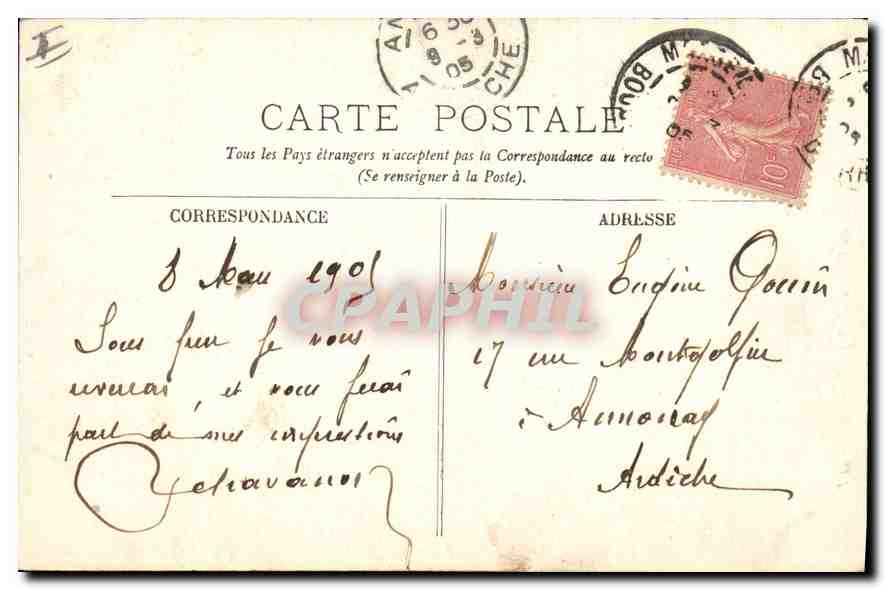 AN
6 30
8 -3
05
CHE
BOUC
05
10c
CARTE POSTALE
Tous les Pays étrangers n'acceptent pas la Correspondance au recto
(Se renseigner à la Poste).
CORRESPONDANCE
8 Mars 1905
Sous peu je vous
reverrai, et vous ferai
part de mes impressions
Chavanon
ADRESSE
Monsieur Eugène
17 rue Montgolfier
à Annonay
Ardèche
CPAPHIL